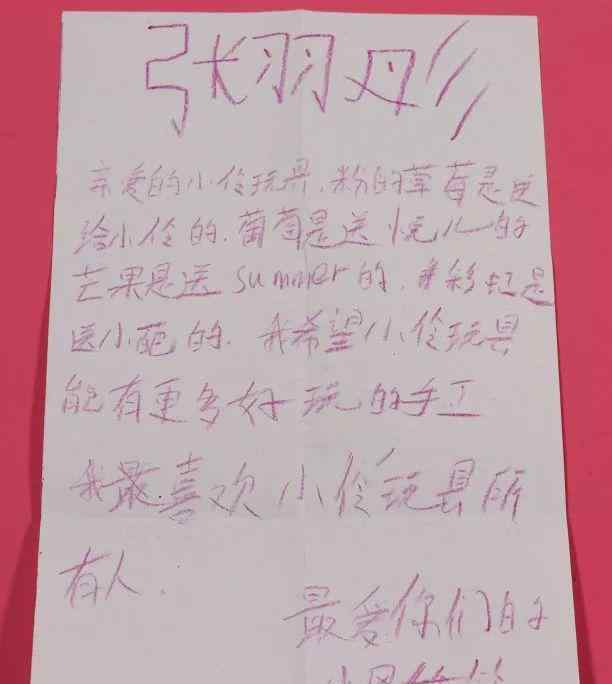 张羽彤
亲爱的小伶玩具,粉的草莓是送
给小伶的,葡萄是送 悦儿的
芒果是送 summer的,彩虹是
送小葩的,我希望小伶玩具
能有更多好玩的手工
我最喜欢小伶玩具所
有人.
最爱你们的
小